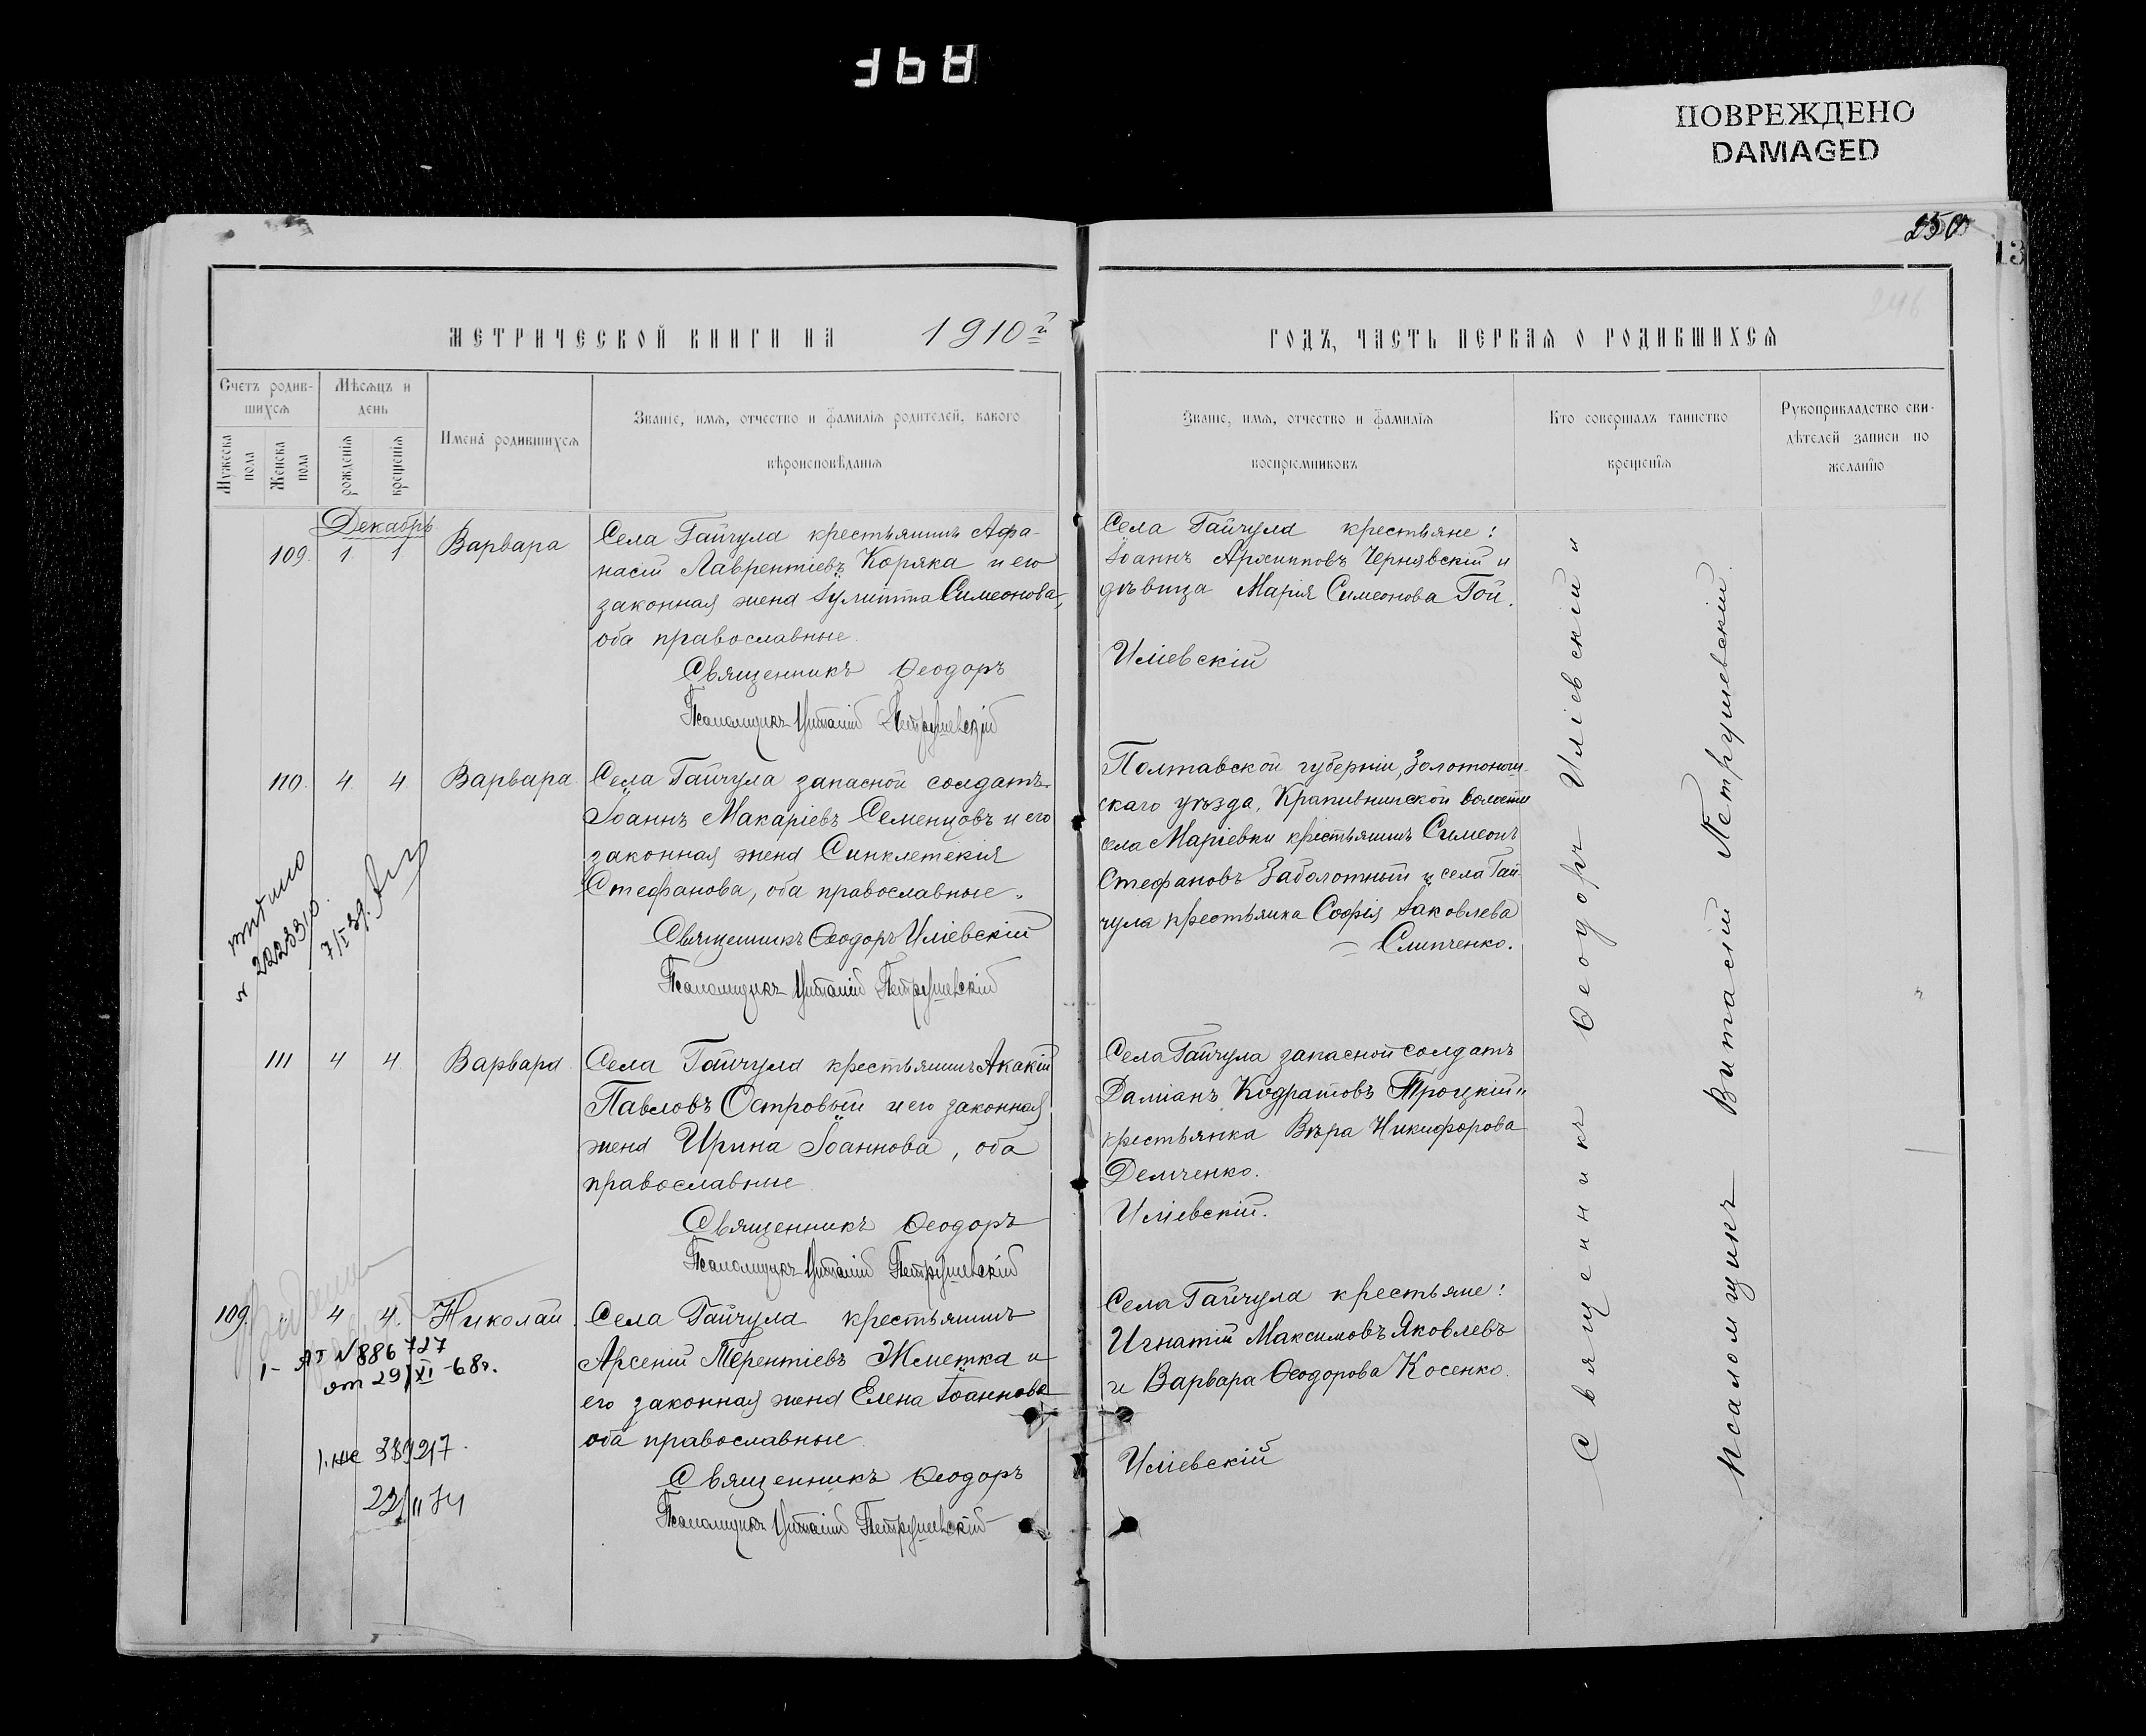 ПОВРЕЖДЕНО
DAMAGED
250
13
246
МЕТРИЧЕСКОЙ КНИГИ НА 1910й
ГОДЪ, ЧАСТЬ ПЕРВАЯ О РОДИВШИХСЯ
Счетъ родив-
шихся
Мужеска
пола
Женска
пола
Мѣсяцъ и
день
рожденія
крещенія
Имена родившихся
Званіе, имя, отчество и фамилія родителей, какого
вѣроисповѣданія
Званіе, имя, отчество и фамилія
воспріемниковъ
Кто совершалъ таинство
крещенія
Рукоприкладство сви-
дѣтелей записи по
желанію
Декабрь
109. 1. 1. Варвара
Села Гайчула крестьянинъ Афа-
насій Лаврентіевъ Коряка и его
законная жена Іулитта Симеонова,
оба православные.
Священникъ Ѳеодоръ
Псаломщикъ Виталій Петрушевскій
Села Гайчула крестьяне:
Іоаннъ Архипповъ Чернявскій и
дѣвица Марія Симеонова Гой.
Иліевскій
110. 4. 4. Варвара
Села Гайчула запасной солдатъ
Іоаннъ Макаріевъ Семенцовъ и его
законная жена Синклетекія
Стефанова, оба православные.
Священникъ Ѳеодоръ Иліевскій
Псаломщикъ Виталій Петрушевскій
Полтавской губерніи, Золотонош-
скаго уѣзда, Крапивнинской волости
села Маріевки крестьянинъ Симеонъ
Стефановъ Заболотный и села Гай-
чула крестьянка Софія Іаковлева
Слипченко.
222330.
7/I 39.
111 4 4 Варвара
Села Гайчула крестьянинъ Акакій
Павловъ Островый и его законная
жена Ирина Іоаннова, оба
православные
Священникъ Ѳеодоръ
Псаломщикъ Виталій Петрушевскій
Села Гайчула запасной солдатъ
Даміанъ Кодратовъ Троцкій и
крестьянка Вѣра Никифорова
Демченко.
Иліевскій.
109. 4 4. Николай
Села Гайчула крестьянинъ
Арсеній Терентіевъ Жметка и
его законная жена Елена Іоаннова
оба православные
Священникъ Ѳеодоръ
Псаломщикъ Виталій Петрушевскій
Села Гайчула крестьяне:
Игнатій Максимовъ Яковлевъ
и Варвара Ѳеодорова Косенко.
Иліевскій
N 886727
от 29/XI-68г.
Священникъ Ѳеодоръ Иліевскій и
Псаломщикъ Виталій Петрушевскій.